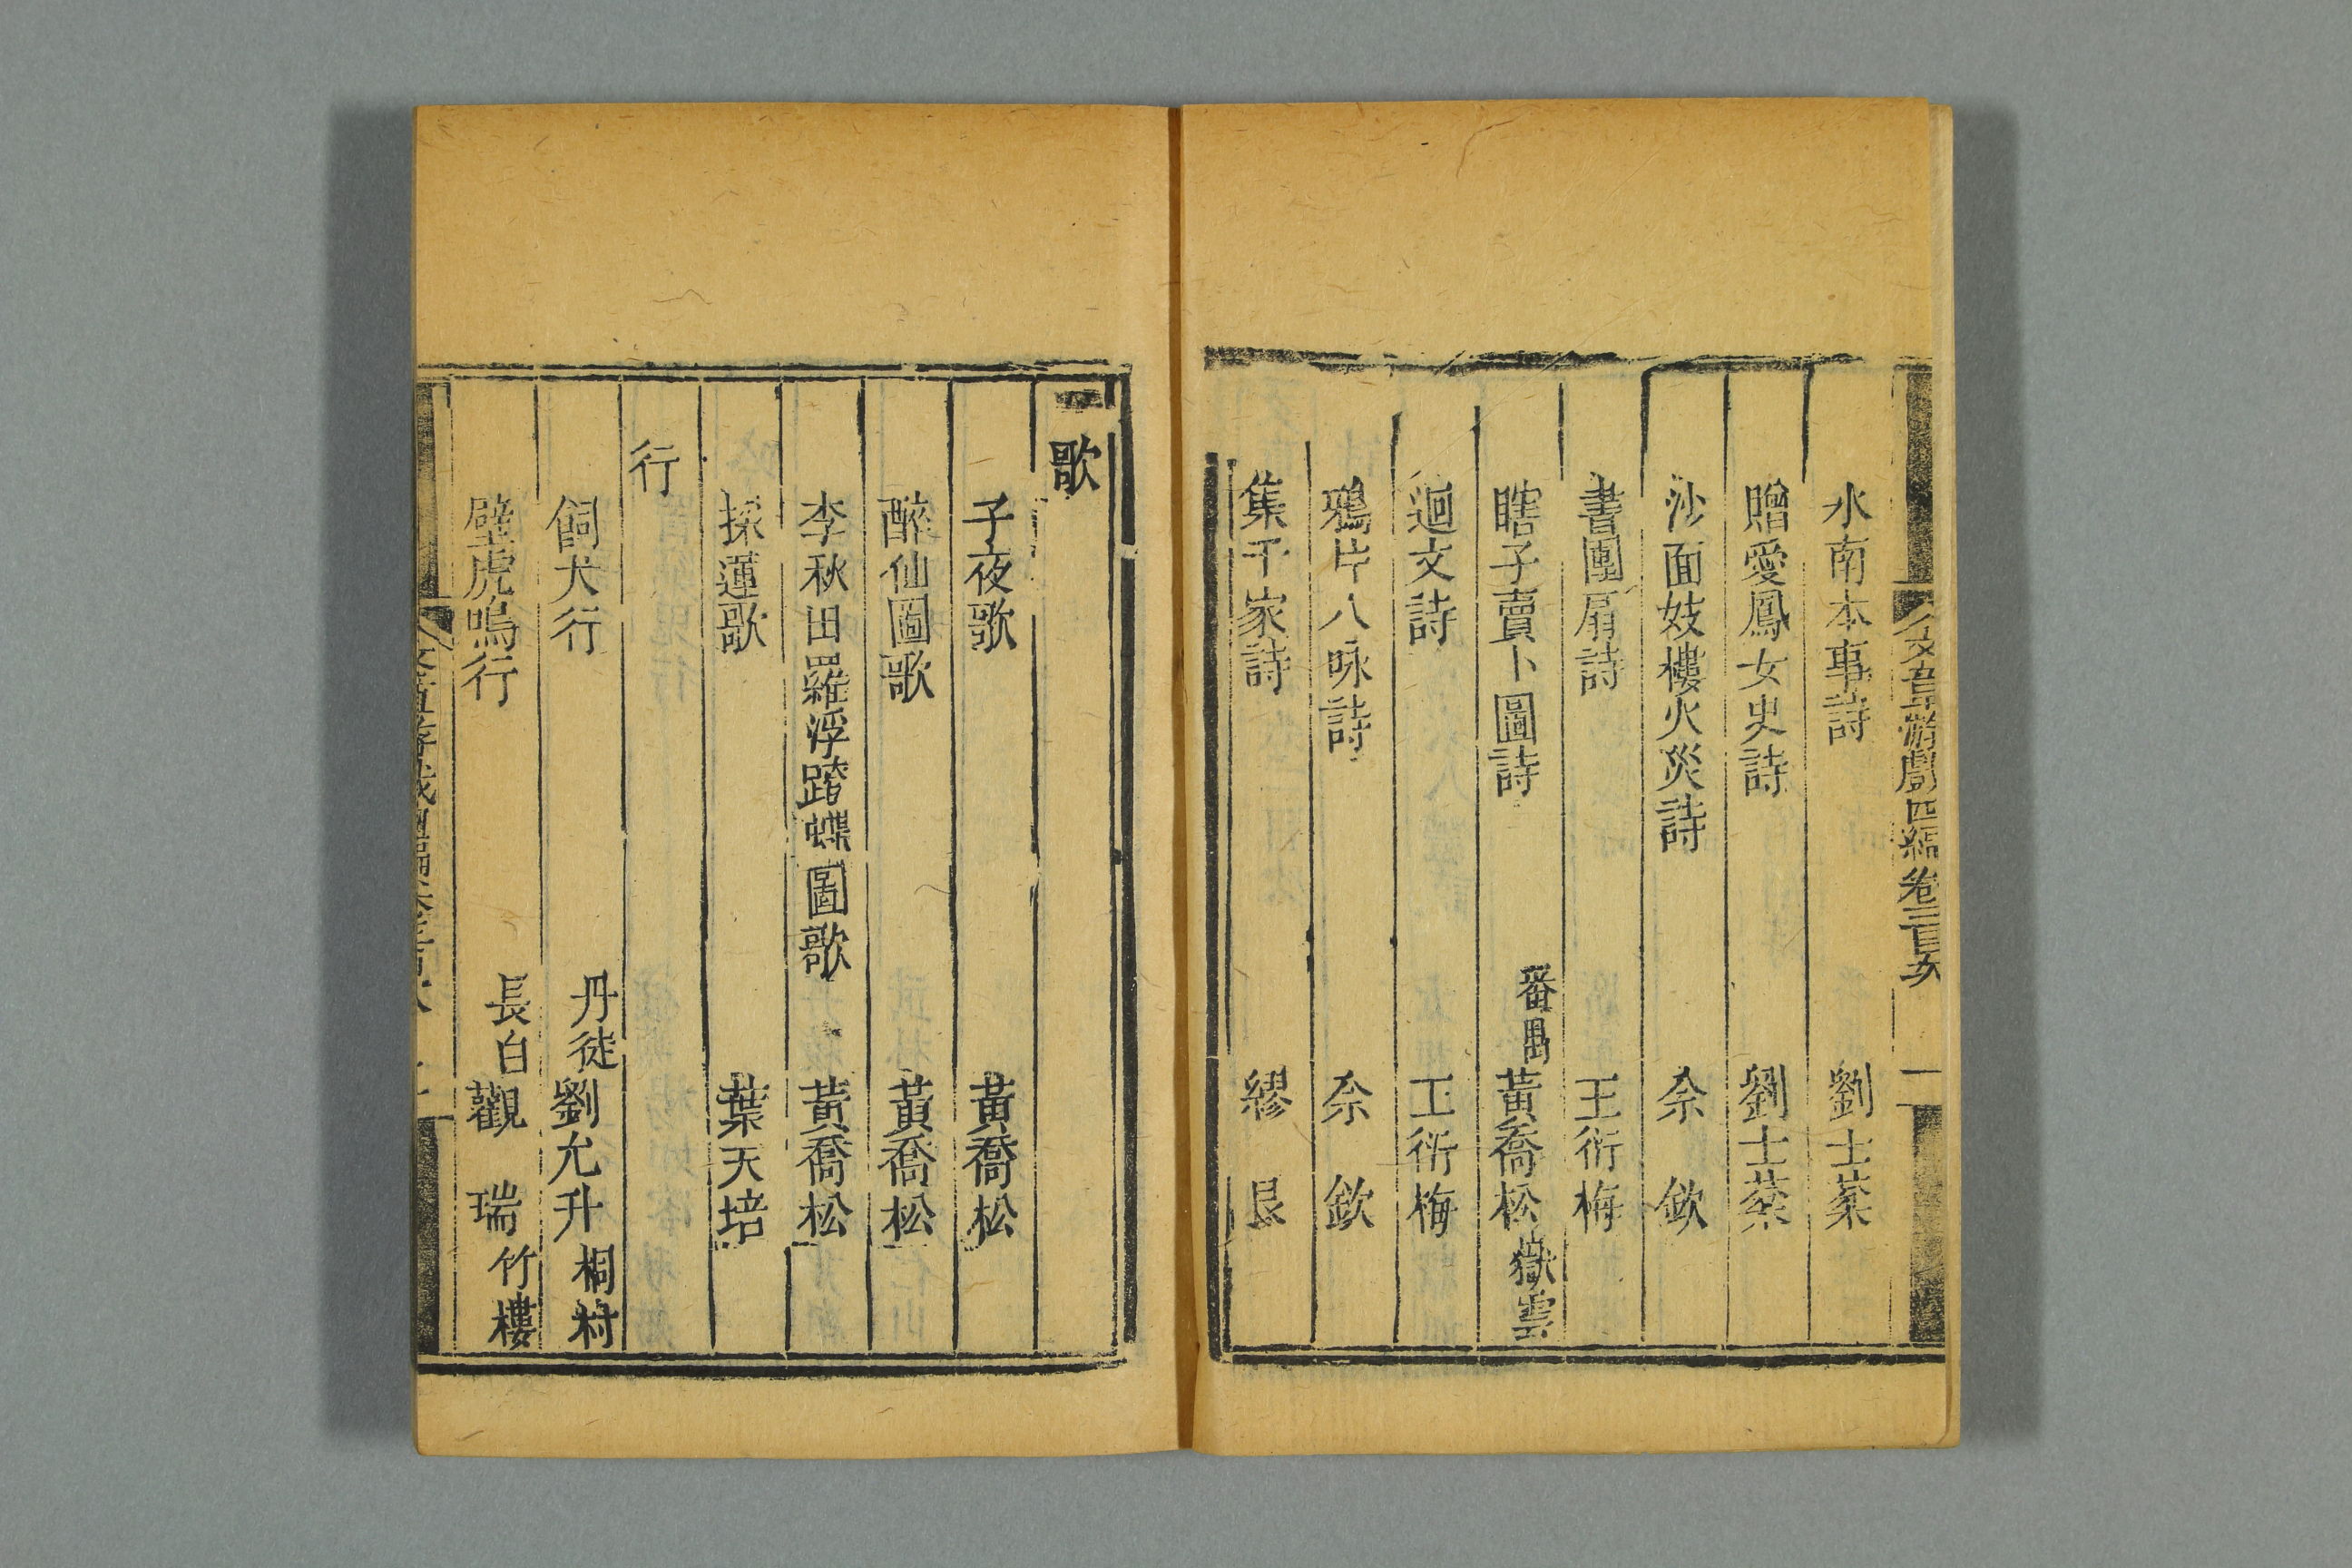 文章游戲四編卷三目次 一
水南本事詩 劉士棻
贈愛鳳女史詩 劉士棻
沙面妓樓火災詩 余欽
書團扇詩 王衍梅
瞎子賣卜圖詩 番禺黃喬松嶽雲
迴文詩 王衍梅
鴉片八咏詩 余欽
集千家詩 繆艮
歌
子夜歌 黃喬松
醉仙圖歌 黃喬松
李秋田羅浮踏蝶圖歌 黃喬松
採蓮歌 葉天培
行
飼犬行 丹徒劉允升桐村
壁虎鳴行 長白觀瑞竹樓